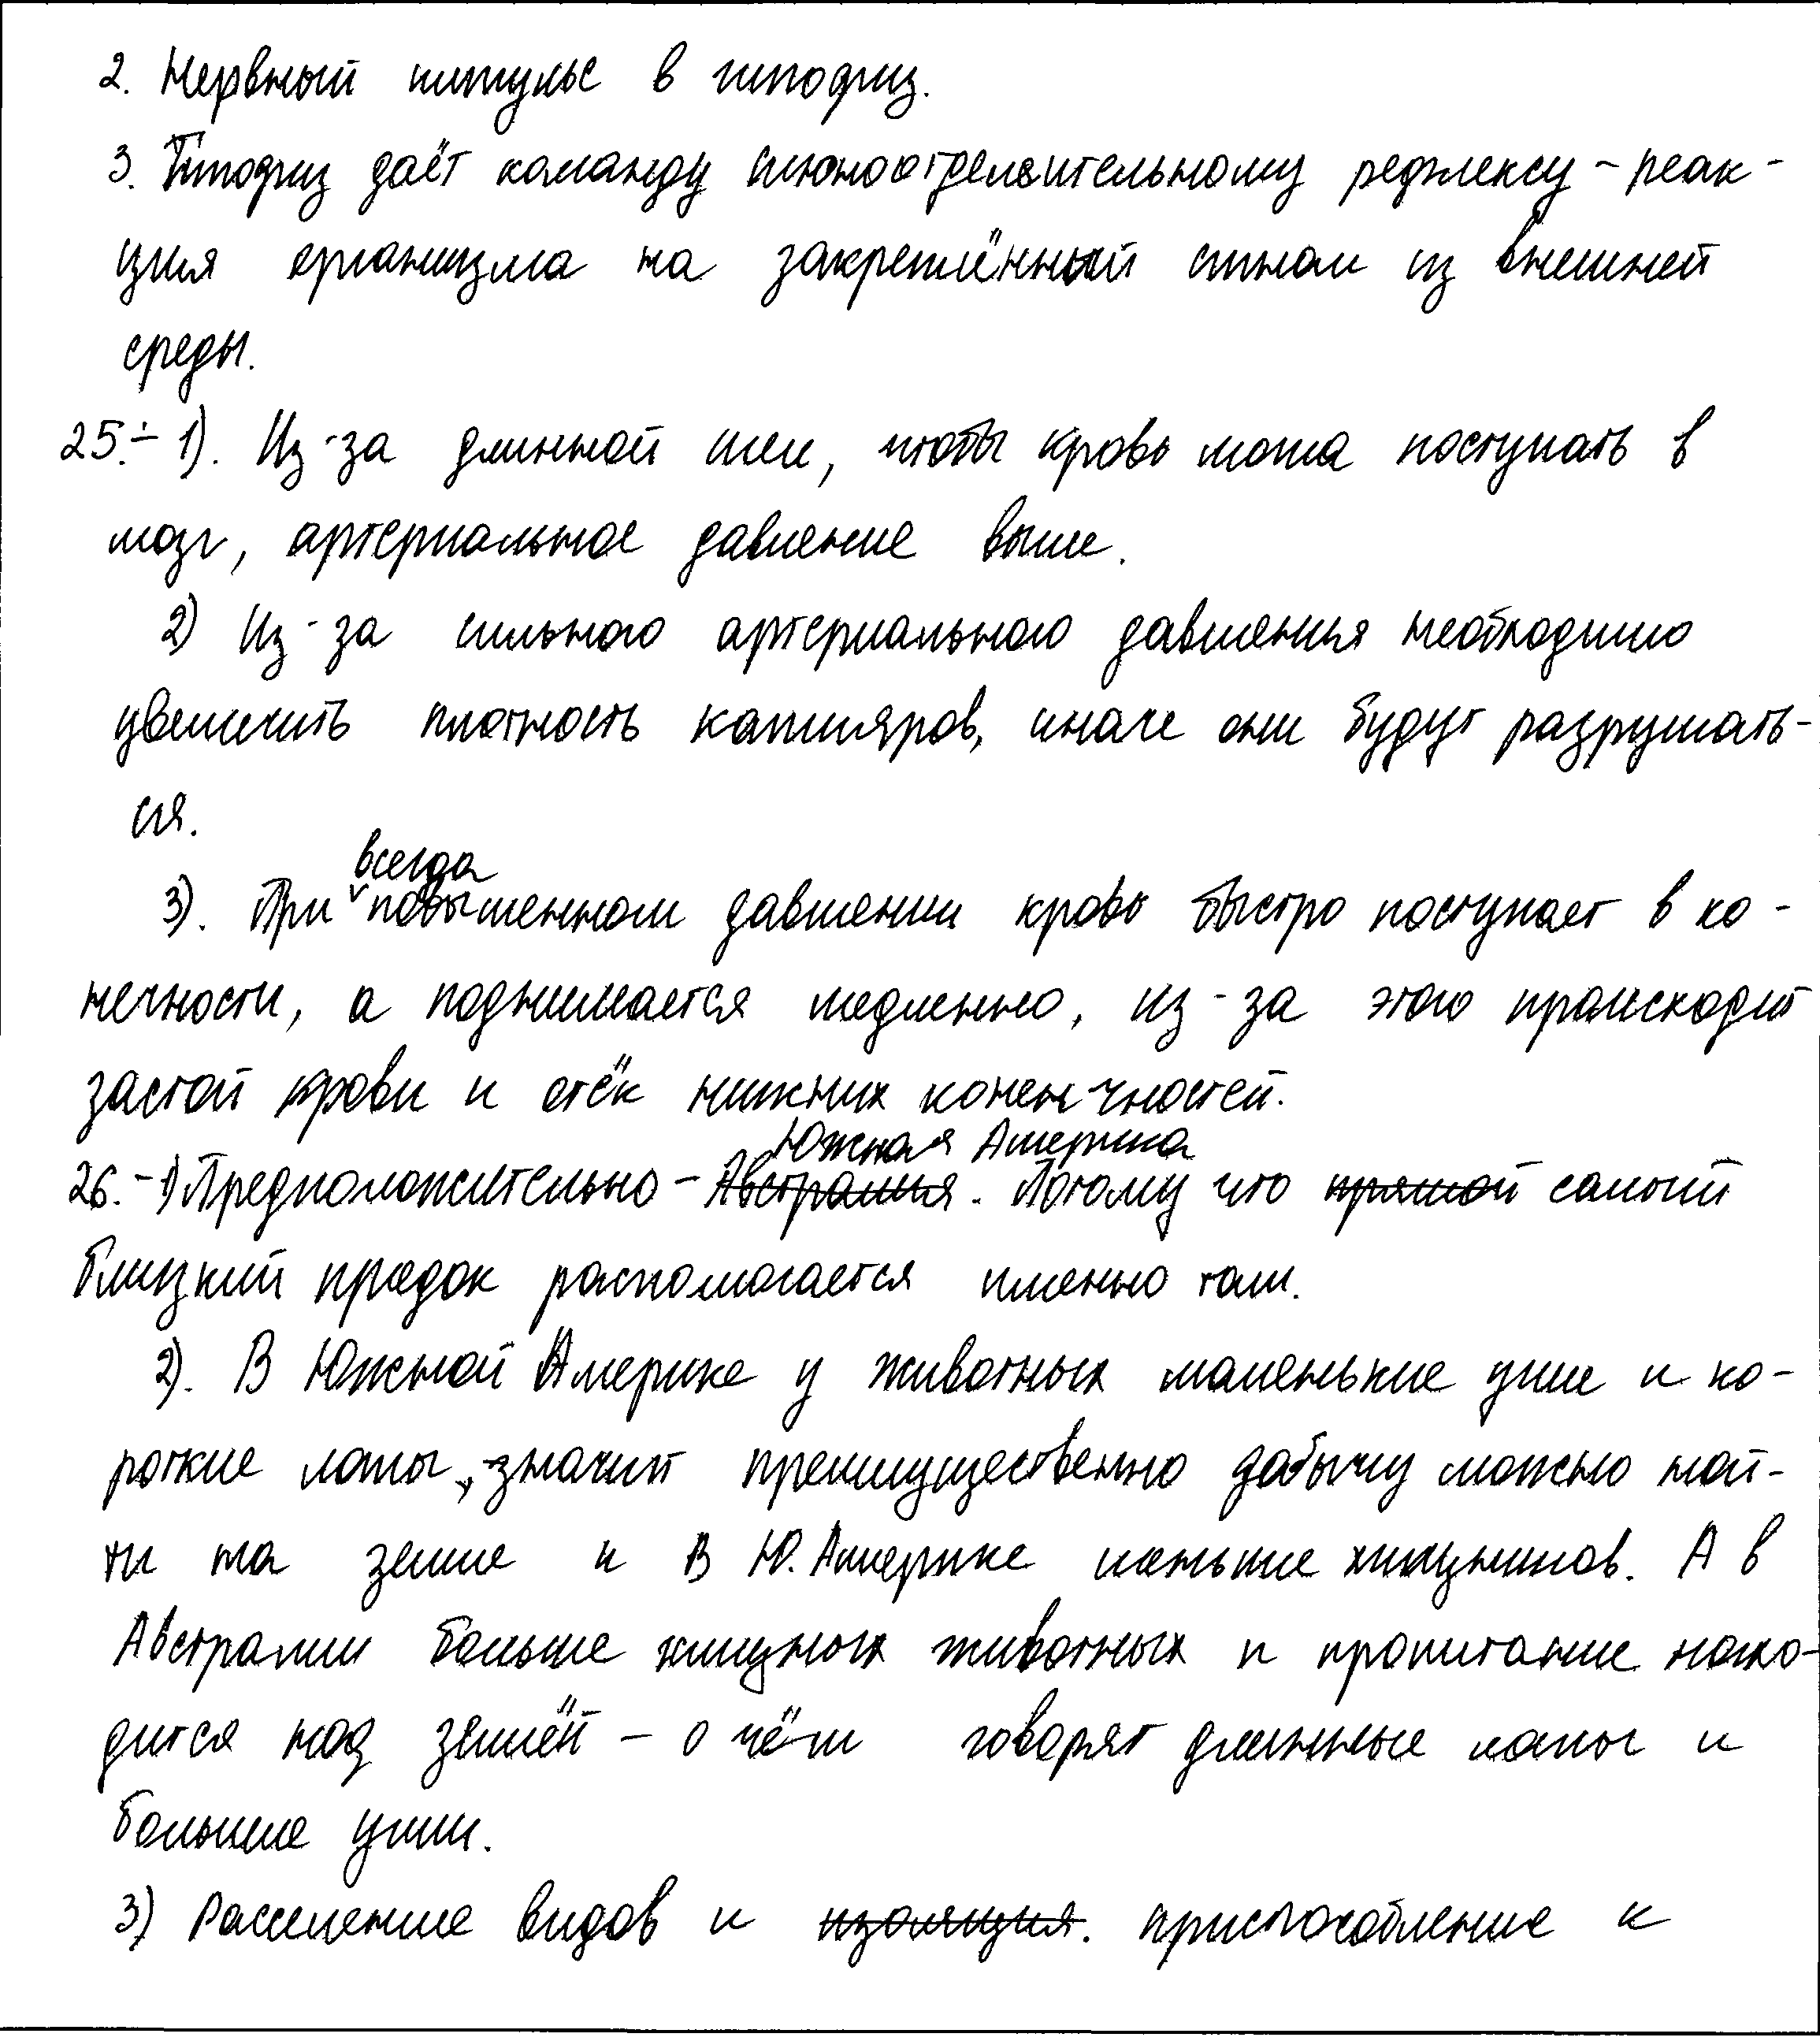 2. Нервный импульс в гипофиз.
3. Гипофиз даёт команду слюноотделительному рефлексу - реак-
ция организма на закреплённый сигнал из внешней
среды.
25. - 1). Из-за длинной шеи, чтобы кровь могла поступать в
мозг, артериальное давление выше.
2) Из-за сильного артериального давления необходимо
увеличить плотность капиляров, иначе они будут разрушать-
ся.
всегда
3). При повышенном давлении кровь быстро поступает в ко-
нечности, а поднимается медленно, из-за этого происходит
застой крови и отёк нижних конечностей.
Южная Америка
26. - 1) Предположительно - Австралия. Потому что прямой самый
близкий предок располагается именно там.
2). В Южной Америке у животных маленькие уши и ко-
роткие лапы, значит преимущественно добычу можно най-
ти на земле и в Ю. Америке меньше хищников. А в
Австралии больше хищных животных и пропитание нахо-
дится над землёй - о чём говорят длинные лапы и
большие уши.
3) Расселение видов и изоляция. приспособление к